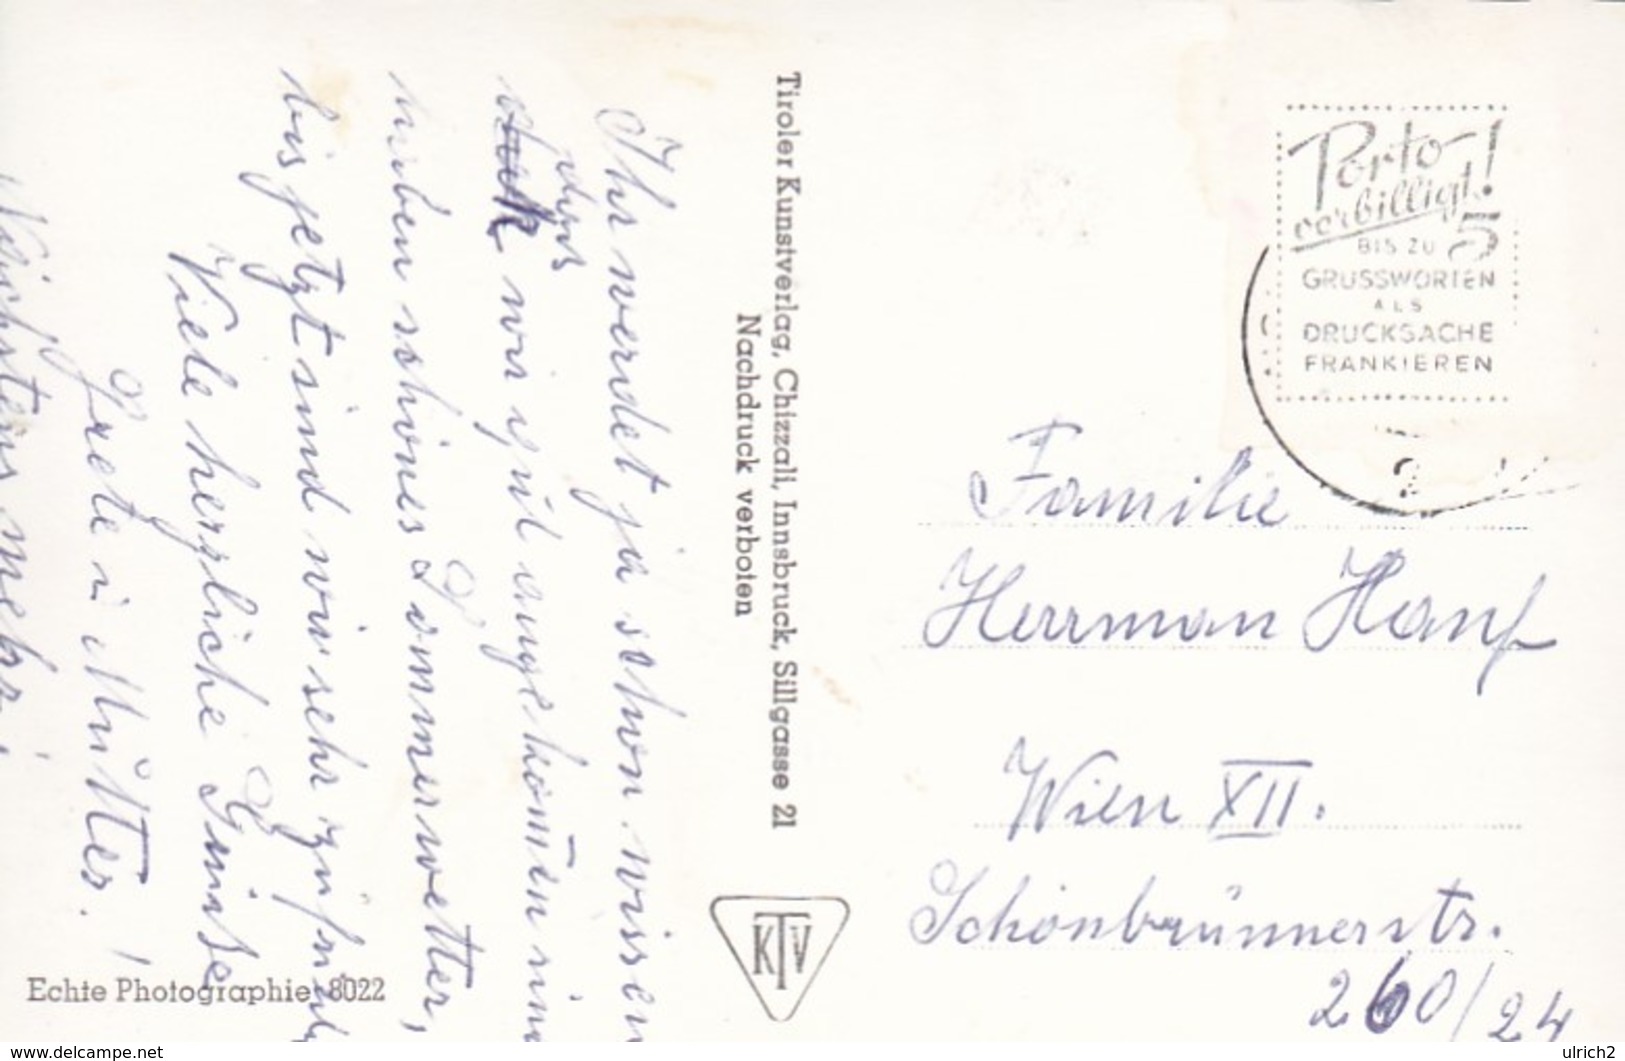 Ihr werdet ja schon wissen
dass
wir gut angekomen sind
haben schönes Sommerwetter,
bis jetzt sind wir sehr zufrieden
Viele herzliche Grüsse
Grete u Mutter.
Nächstens mehr!
Tiroler Kunstverlag, Chizzali, Innsbruck, Sillgasse 21
Nachdruck verboten
KTV
Echte Photographie 8022
Porto-
verbilligt!
BIS ZU 5
GRUSSWORTEN
ALS
DRUCKSACHE
FRANKIEREN
2
Familie
Herrman Hanf
Wien XII.
Schönbrünnerstr.
260/24
www.delcampe.net
ulrich2